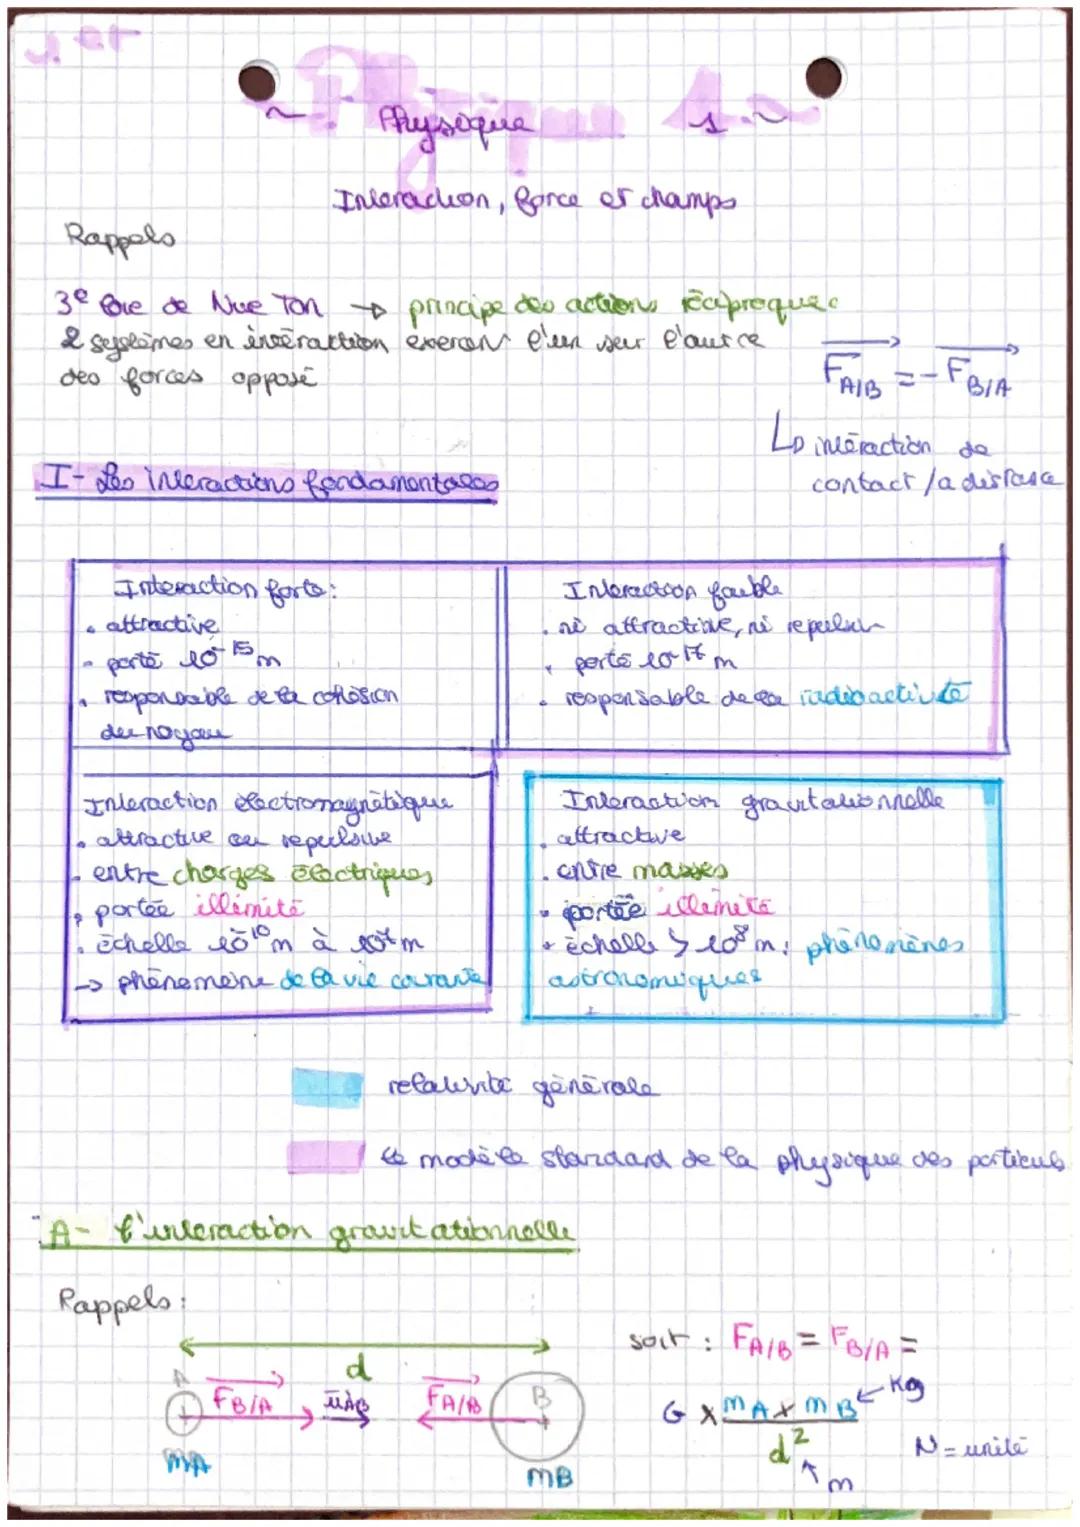 Physique 1
Interaction, force et champs
Rappels
3e loie de Nue Ton → principe des actions réciproques
2 systèmes en intéraction exercent l'un sur l'autre
des forces opposé
F A/B = - F B/A
↳ intéraction de
contact / a distance
I- Les interactions fondamentales
Interaction forte:
• attractive
• porté 10^-15 m
• responsable de la cohésion
du noyau
Interaction faible
• ni attractive, ni repulsiv
• porté 10^-17 m
• responsable de la radioactivité
Interaction électromagnétique
• attractive ou repulsive
• entre charges électriques
• portée illimité
• échelle 10^-10 m à 10^7 m
→ phénomène de la vie courante
Interaction gravitationnelle
• attractive
• entre masses
• portée illimité
• échelle > 10^8 m : phénomènes
astronomiques
relativité générale
le modèle standard de la physique des particules
A- l'interaction gravitationnelle
Rappels :
d
A F B/A u AB F A/B B
mA mB
soit : F A/B = F B/A =
G x mA x mB ← Kg
d² N = unité
↑ m